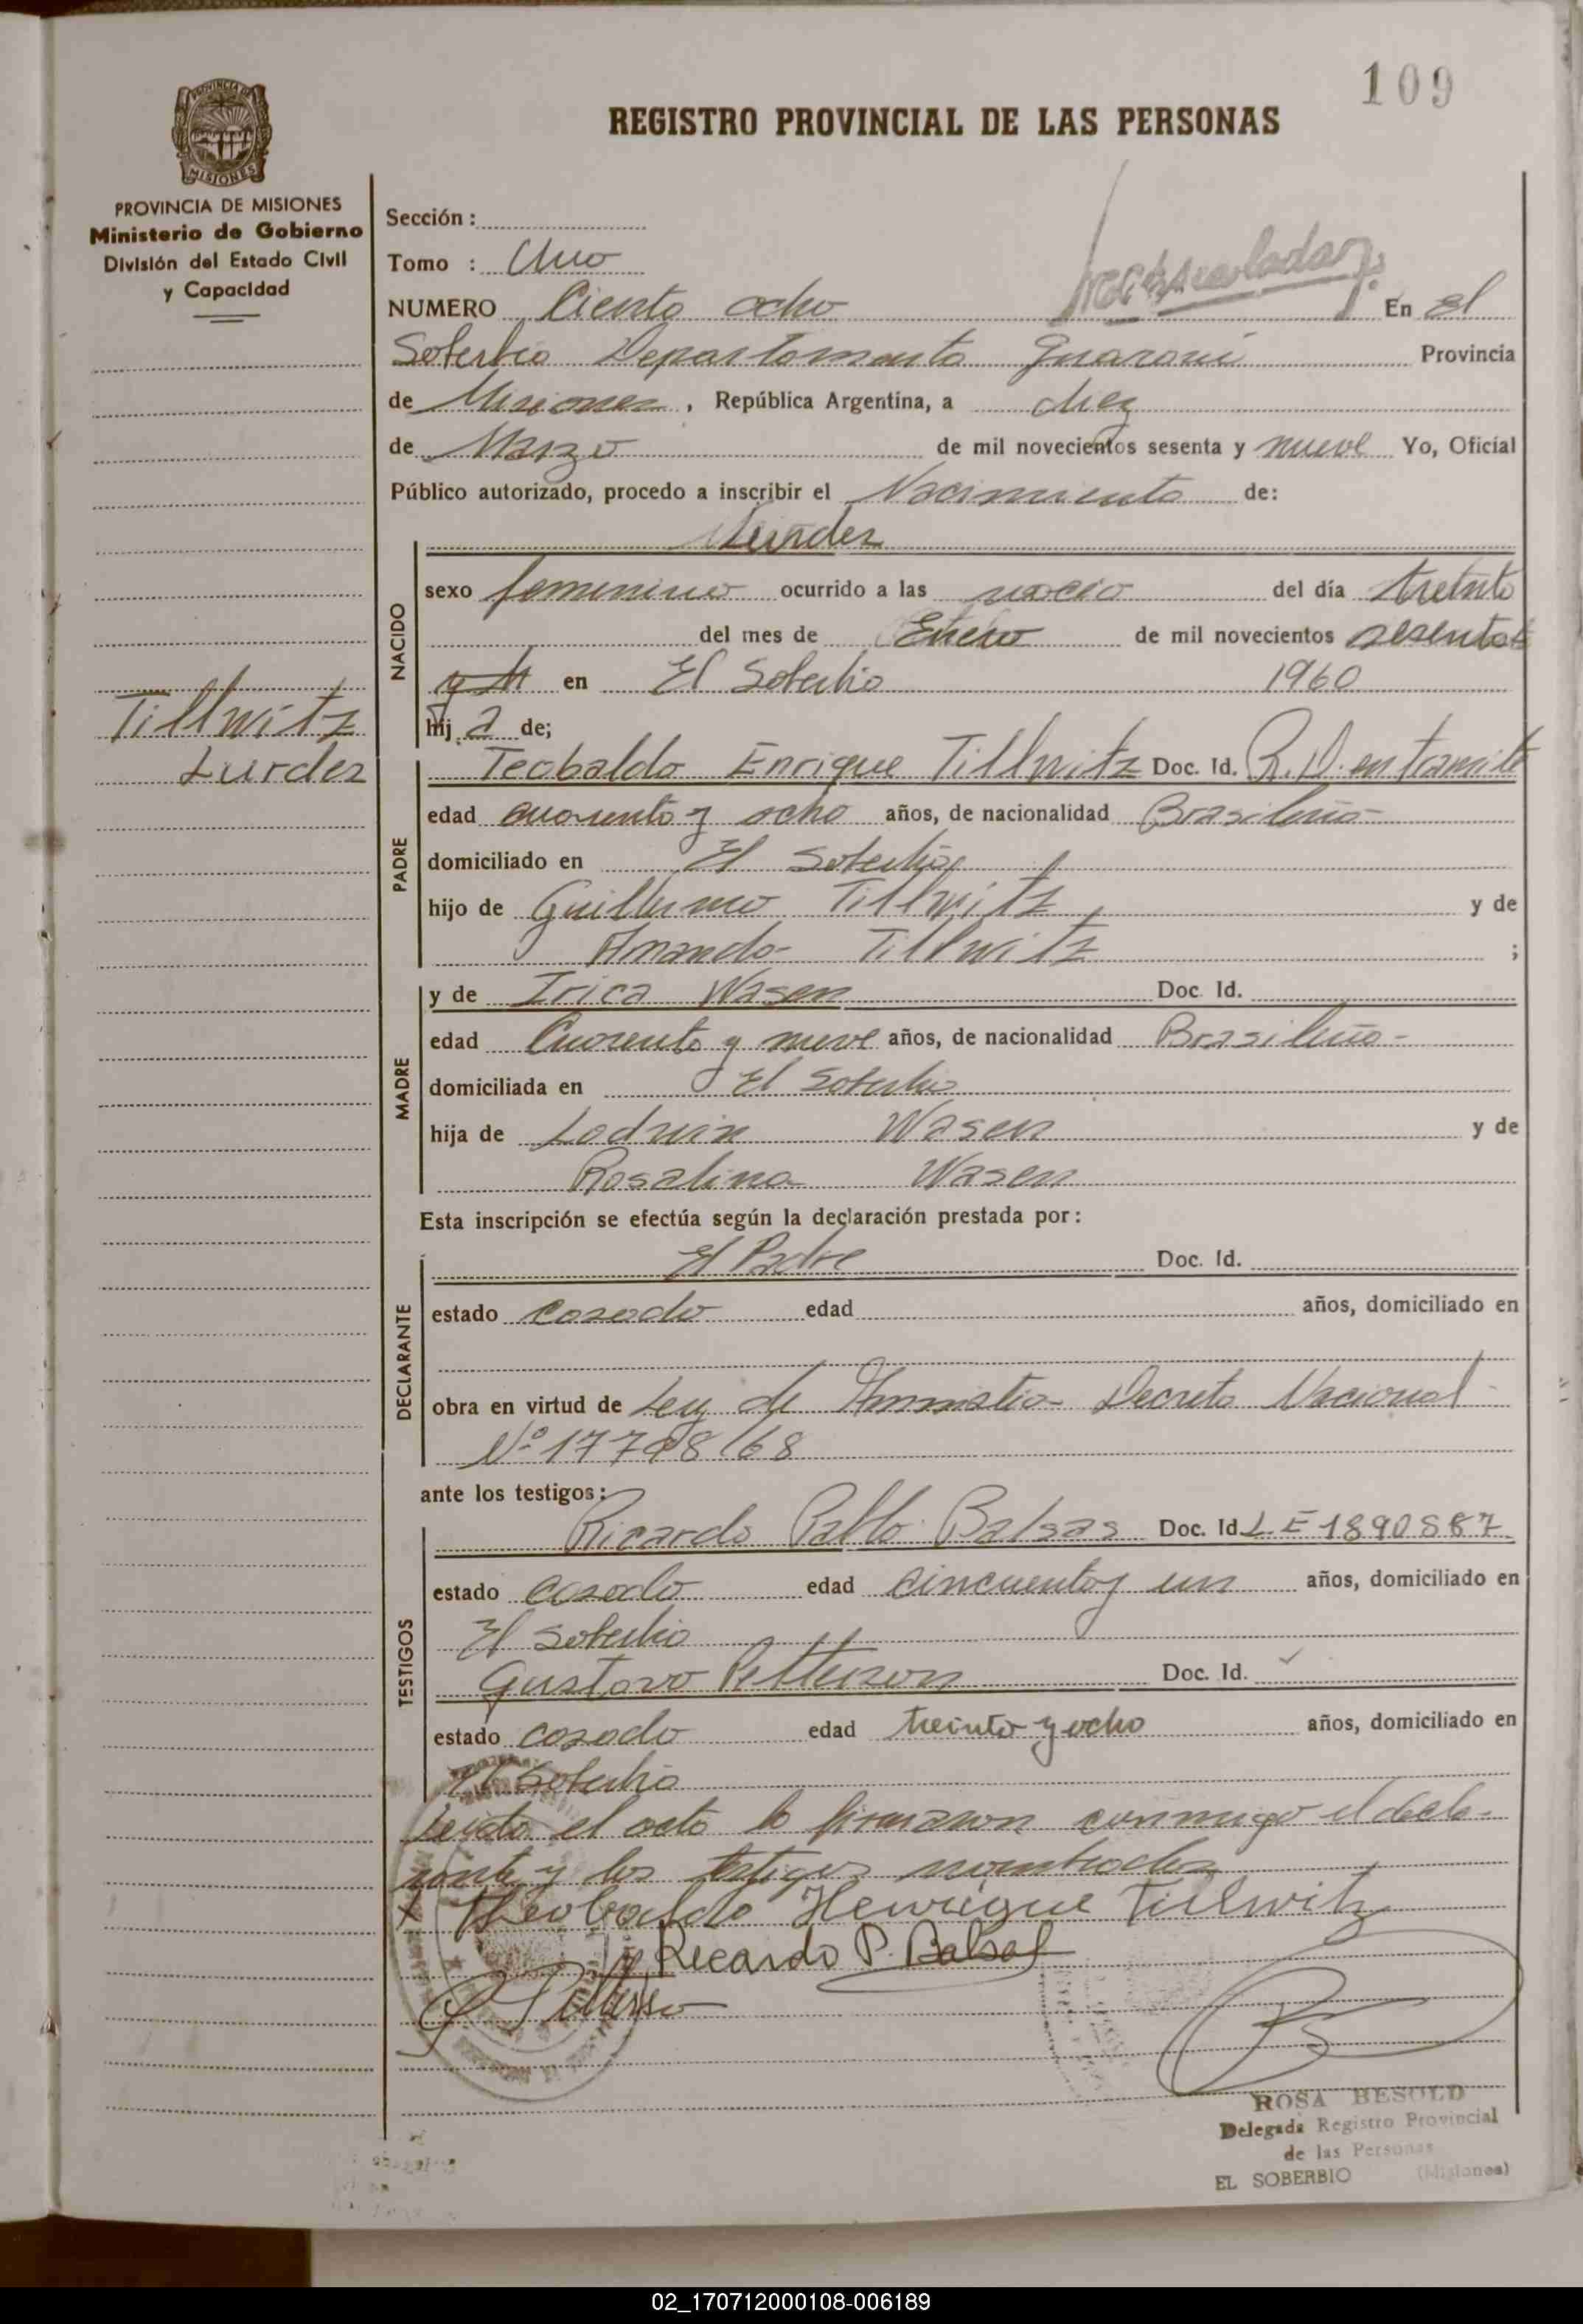 109
REGISTRO PROVINCIAL DE LAS PERSONAS
PROVINCIA DE
MISIONES
PROVINCIA DE MISIONES
Ministerio de Gobierno
División del Estado Civil
y Capacidad
Sección :
Tomo : Uno
NUMERO Ciento ocho En El
Soberbio Departamento Guaraní Provincia
de Misiones, República Argentina, a diez
de Marzo de mil novecientos sesenta y nueve Yo, Oficial
Público autorizado, procedo a inscribir el Nacimiento de:
Lurdes
NACIDO
sexo femenino ocurrido a las del día treinta
del mes de Enero de mil novecientos sesenta
en El Soberbio 1960
hij a de;
Tillwitz
Lurdes
PADRE
Teobaldo Enrique Tillwitz Doc. Id. R.D. en tramite
edad cuarenta y ocho años, de nacionalidad Brasileña-
domiciliado en El Soberbio
hijo de Guillermo Tillwitz y de
Amanda- Tillwitz ;
MADRE
y de Irica Wasen Doc. Id.
edad Cuarenta y nueve años, de nacionalidad Brasileña-
domiciliada en El Soberbio
hija de Lodwin Wasen y de
Rosalina Wasen
Esta inscripción se efectúa según la declaración prestada por:
DECLARANTE
El Padre Doc. Id.
estado casado edad años, domiciliado en
obra en virtud de Ley de Ammistia- Decreto Nacional-
Nº 17798/68
ante los testigos:
TESTIGOS
Ricardo Pablo Balsas Doc. Id. L E 1890887
estado casado edad cincuenta y un años, domiciliado en
El Soberbio
Gustavo Petterson Doc. Id.
estado casado edad treinta y ocho años, domiciliado en
El Soberbio
Leida el acta la firmaron conmigo el decla-
rante y los testigos nombrados
x Theobaldo Henrique Tillwitz
Ricardo P. Balsas
ROSA BESOLD
Delegada Registro Provincial
de las Personas
EL SOBERBIO (Misiones)
02_170712000108-006189